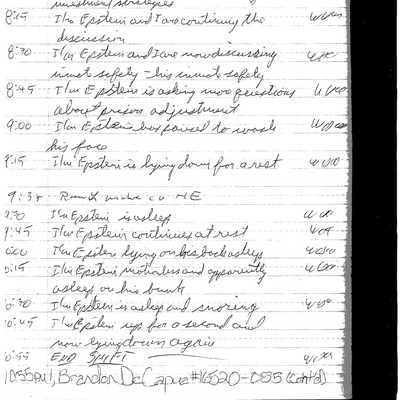 investment strategies
8:15 I/m Epstein and I are continuing the
discussion
8:30 I/m Epstein and I are now discussing
inmate safety - his inmate safety
8:45 I/m Epstein is asking more questions
about prison adjustment
9:00 I/m Epstein has paused to wash
his face
9:15 I/m Epstein is lying down for a rest
9:30
9:30 I/m Epstein is asleep
9:45 I/m Epstein continues at rest
0:00 I/m Epstein lying on his back asleep
0:15 I/m Epstein motionless and apparently
asleep on his bunk
0:30 I/m Epstein is asleep and snoring
0:45 I/m Epstein up for a second and
now lying down again
0:55 END SHIFT
10:55pm I, Brandon #16520-055 (cont'd)